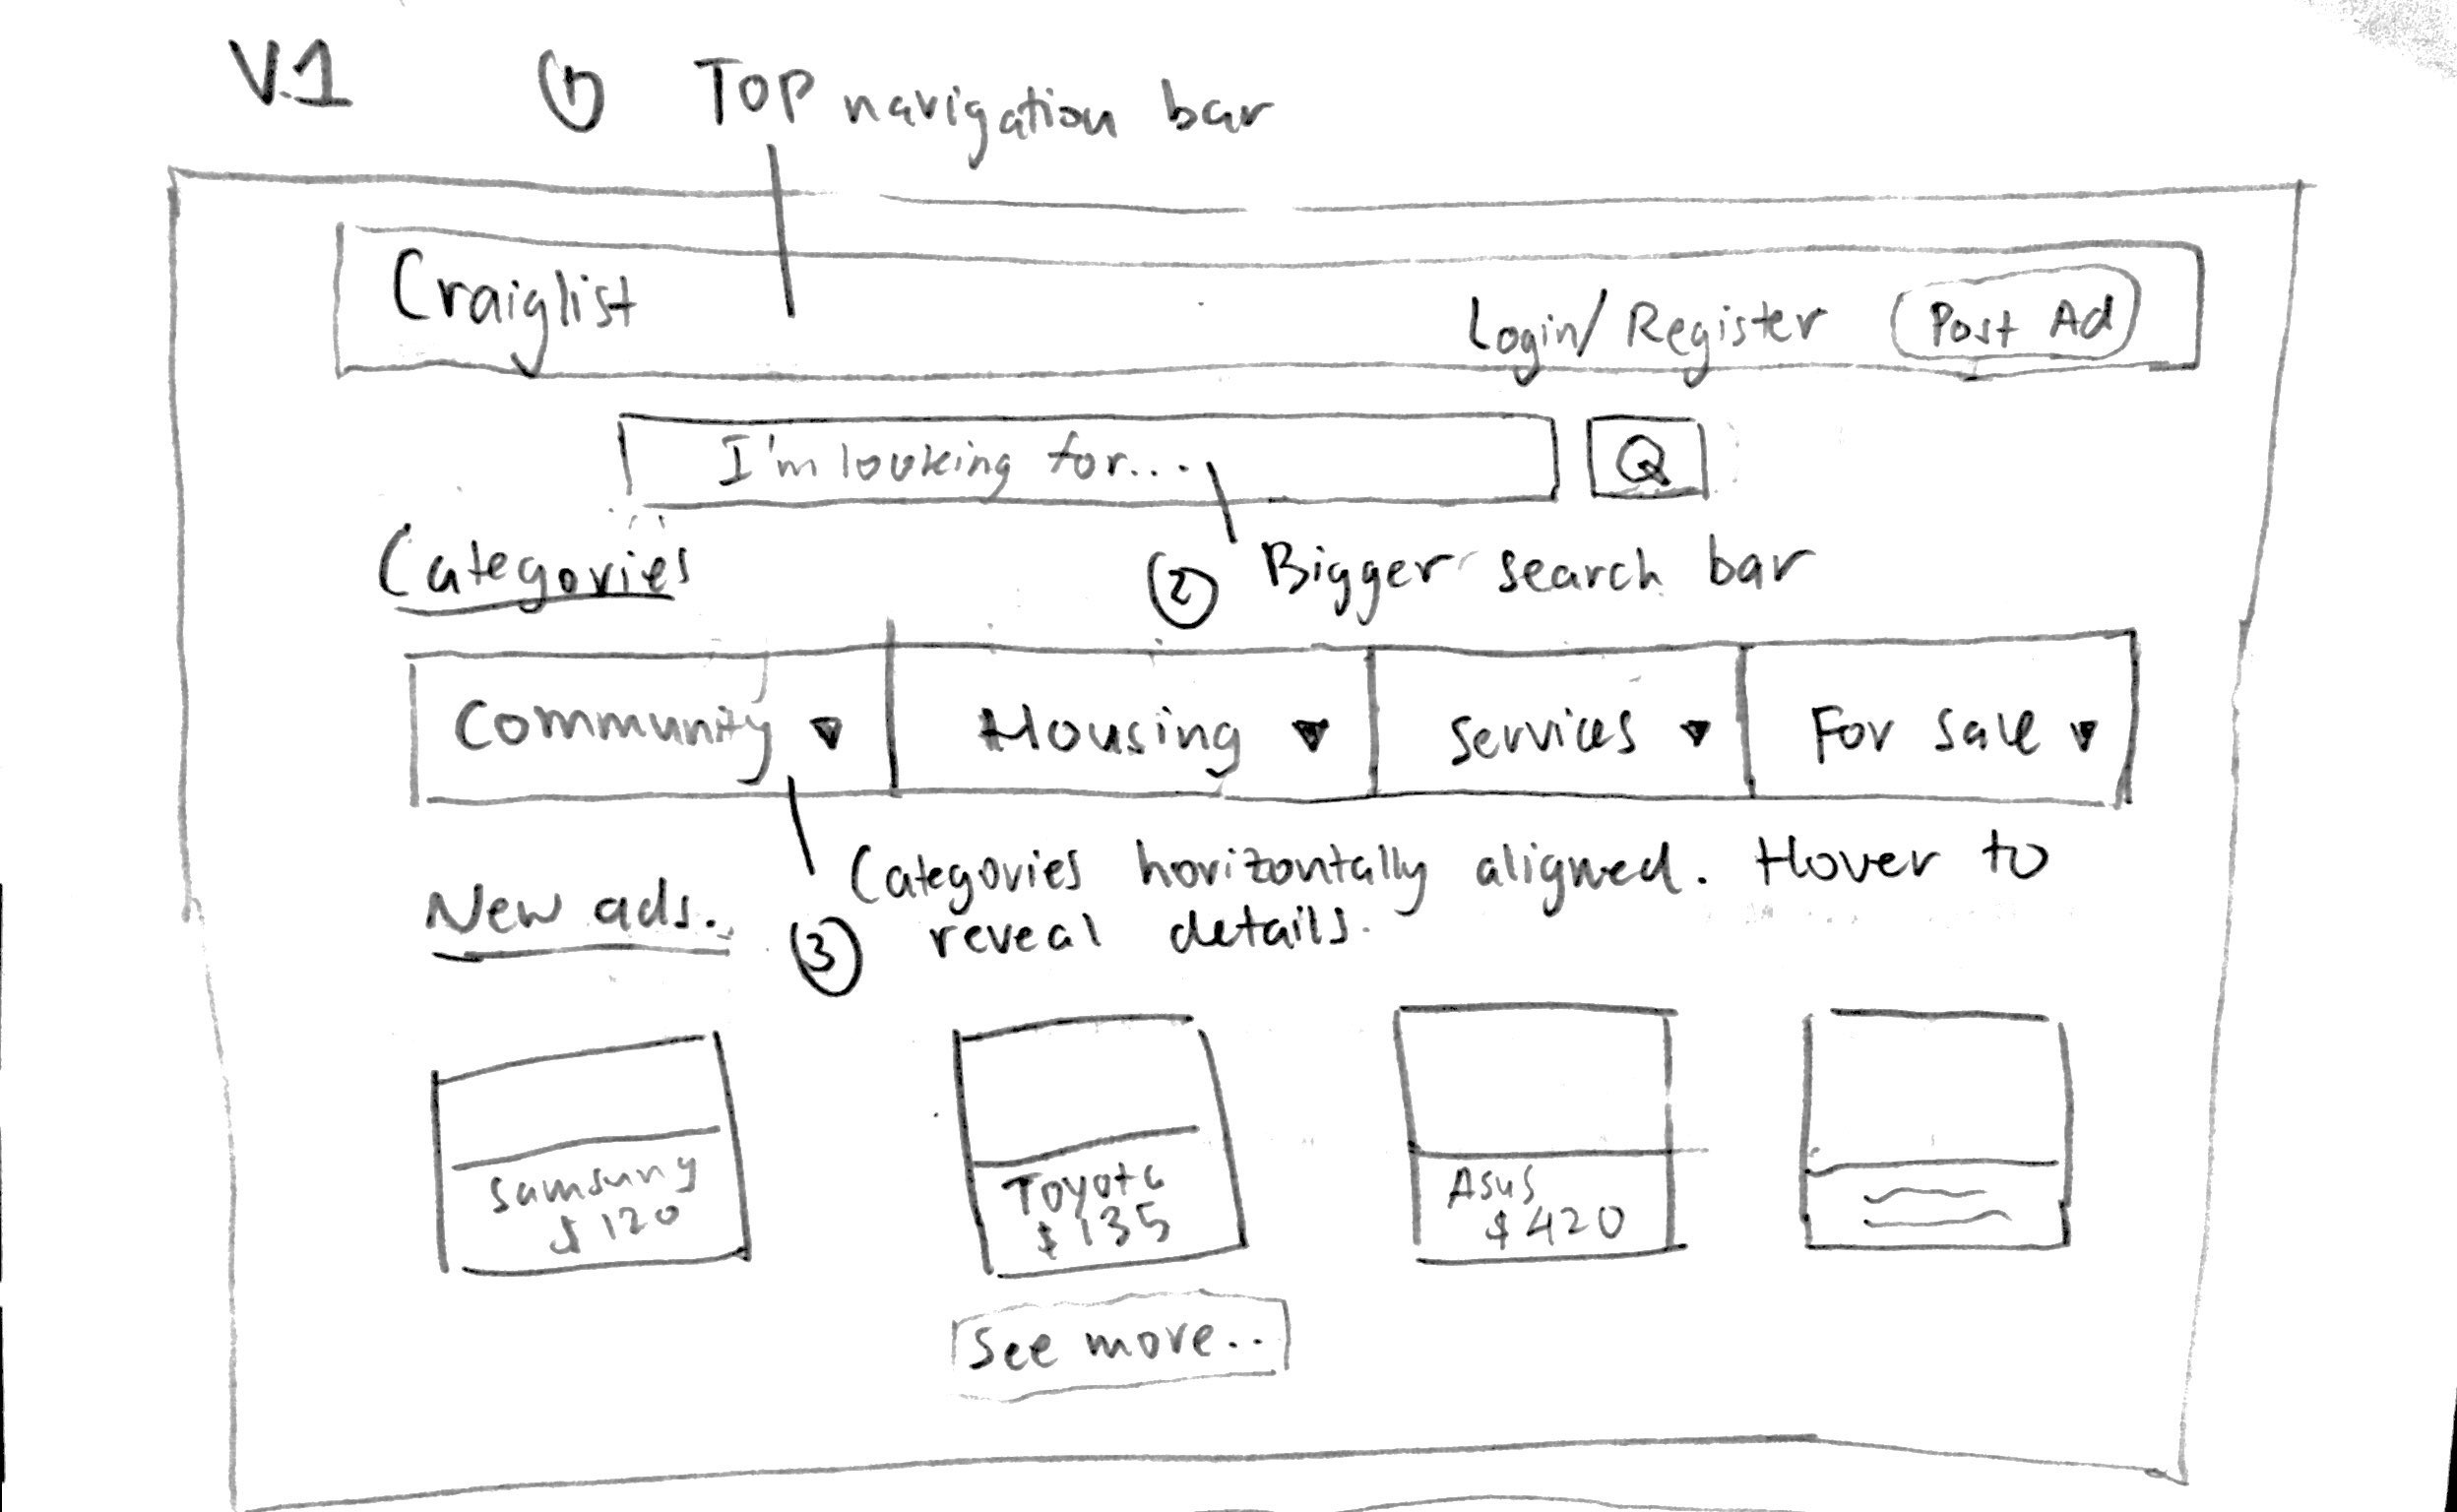 V.1
① Top navigation bar
Craiglist
Login/Register
Post Ad
I'm looking for...
Categories
② Bigger search bar
Community ▼
Housing ▼
Services ▼
For sale ▼
Categories horizontally aligned. Hover to
③ reveal details.
New ads.
Samsung
$120
Toyota
$135
Asus
$420
See more..